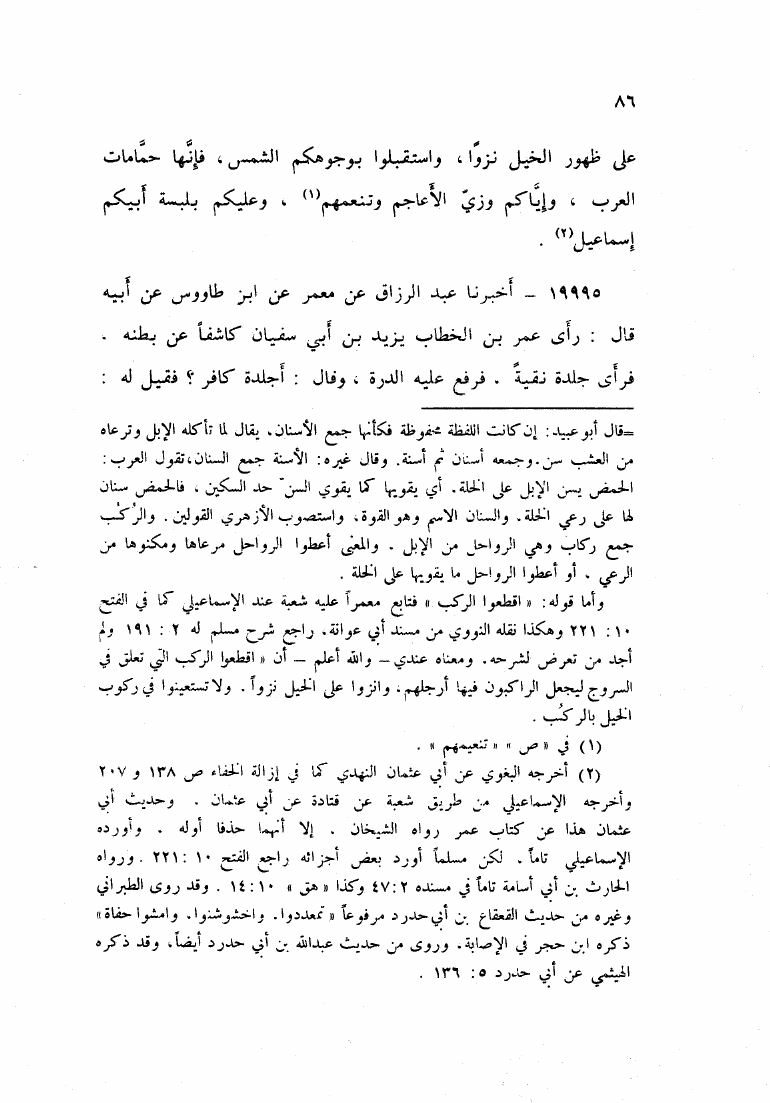 ٨٦
على ظهور الخيل نزوًا ، واستقبلوا بوجوهكم الشمس ، فإنَّها حمَّامات
العرب ، وإيَّاكم وزيّ الأعاجم وتنعمهم(١) ، وعليكم بلبسة أبيكم
إسماعيل(٢) .
١٩٩٩٥ – أخبرنا عبد الرزاق عن معمر عن ابن طاووس عن أبيه
قال : رأى عمر بن الخطاب يزيد بن أبي سفيان كاشفاً عن بطنه .
فرأى جلدة نقيةً . فرفع عليه الدرة ، وقال : أجلدة كافر ؟ فقيل له :
=قال أبو عبيد : إن كانت اللفظة محفوظة فكأنها جمع الأسنان ، يقال لما تأكله الإبل وترعاه
من العشب سن. وجمعه أسنان ثم أسنة. وقال غيره: الأسنة جمع السنان، تقول العرب:
الحمض يسن الإبل على الخلة. أي يقويها كما يقوي السن حد السكين ، فالحمض سنان
لها على رعي الخلة. والسنان الاسم وهو القوة، واستصوب الأزهري القولين. والرُكُب
جمع ركاب وهي الرواحل من الإبل . والمعنى أعطوا الرواحل مرعاها ومكنوها من
الرعي ، أو أعطوا الرواحل ما يقويها على الخلة .
وأما قوله: « اقطعوا الركب » فتابع معمراً عليه شعبة عند الإسماعيلي كما في الفتح
١٠: ٢٢١ وهكذا نقله النووي من مسند أبي عوانة. راجع شرح مسلم له ٢ : ١٩١ ولم
أجد من تعرض لشرحه. ومعناه عندي – والله أعلم – أن « اقطعوا الركب التي تعلق في
السروج ليجعل الراكبون فيها أرجلهم، وانزوا على الخيل نزواً. ولا تستعينوا في ركوب
الخيل بالركُب .
(١) في « ص » « تنعيمهم » .
(٢) أخرجه البغوي عن أبي عثمان النهدي كما في إزالة الخفاء ص ١٣٨ و ٢٠٧
وأخرجه الإسماعيلي من طريق شعبة عن قتادة عن أبي عثمان . وحديث أبي
عثمان هذا عن كتاب عمر رواه الشيخان . إلا أنهما حذفا أوله . وأورده
الإسماعيلي تاماً. لكن مسلماً أورد بعض أجزائه راجع الفتح ١٠ : ٢٢١ . ورواه
الحارث بن أبي أسامة تاماً في مسنده ٢: ٤٧ وكذا « هق » ١٠: ١٤ . وقد روى الطبراني
وغيره من حديث القعقاع بن أبي حدرد مرفوعاً « تمعددوا، واخشوشنوا، وامشوا حفاة »
ذكره ابن حجر في الإصابة، وروى من حديث عبدالله بن أبي حدرد أيضاً، وقد ذكره
الهيثمي عن أبي حدرد ٥: ١٣٦ .